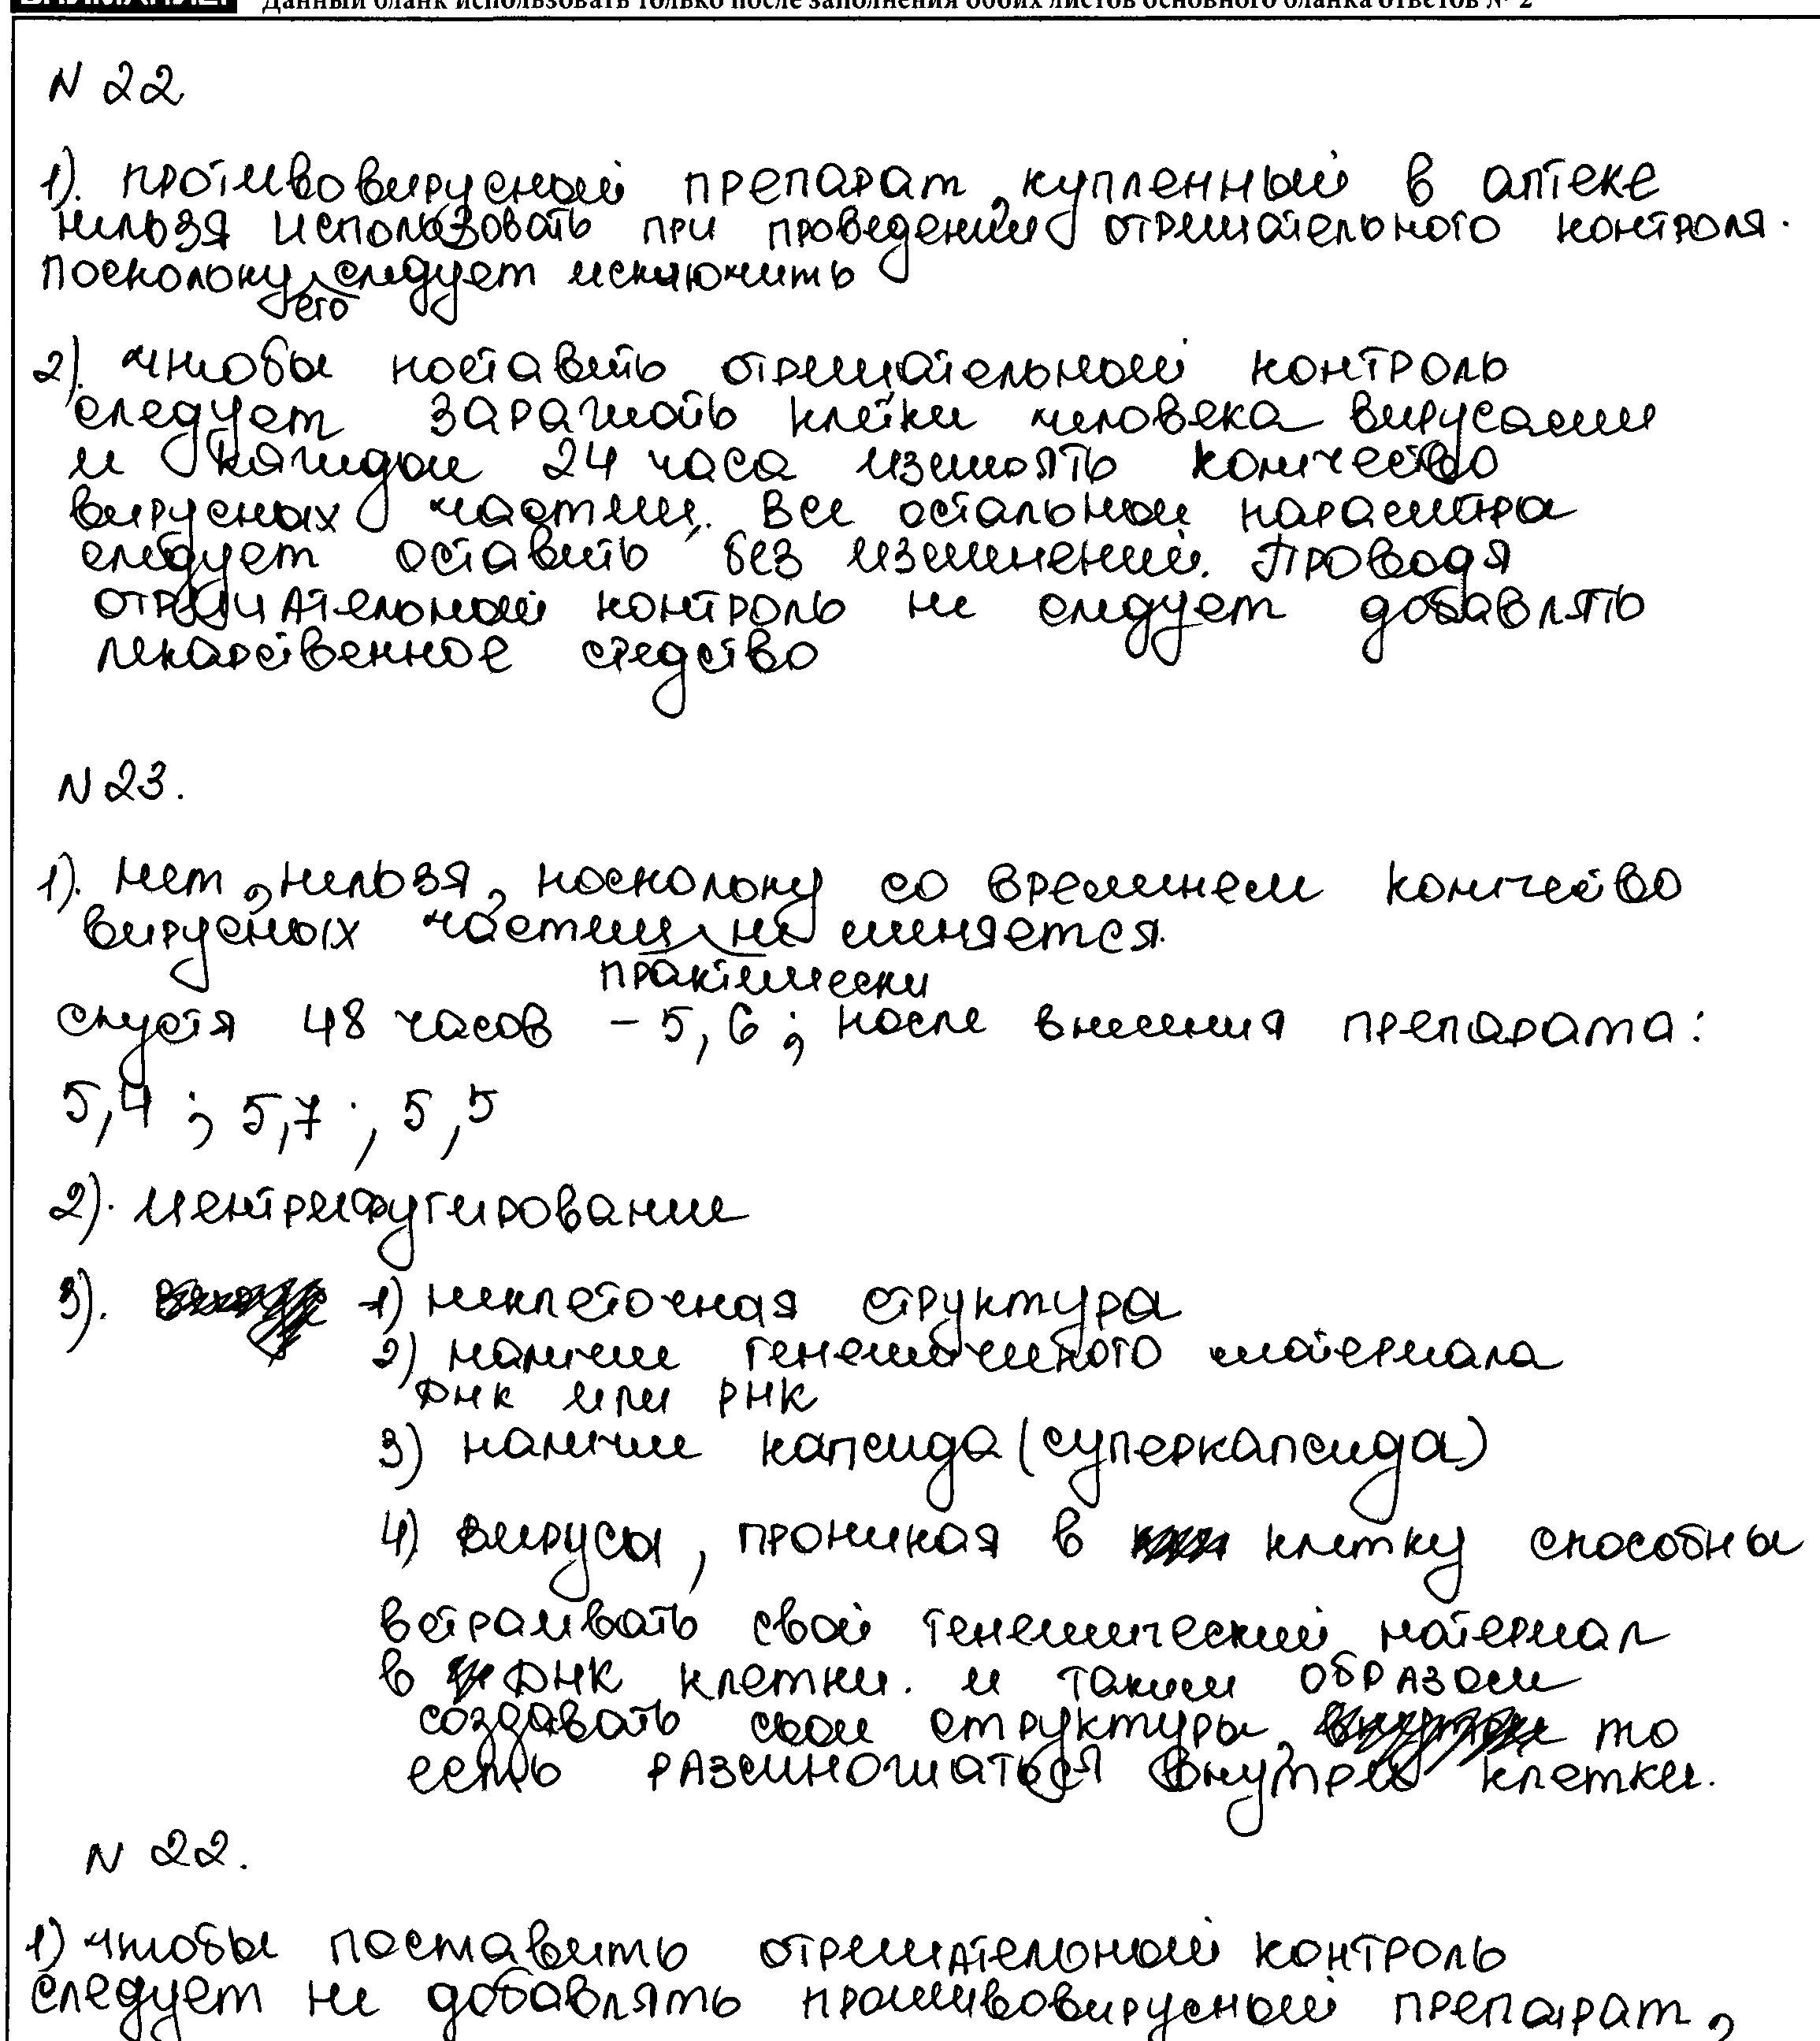 Данный бланк использовать только после заполнения обоих листов основного бланка ответов № 2
N 22
1). противовирусный препарат, купленный в аптеке
нельзя использовать при проведении отрицательного контроля.
поскольку его следует исключить
2). чтобы поставить отрицательный контроль
следует заражать клетки человека вирусами
и каждые 24 часа измерять количество
вирусных частиц. Все остальные параметры
следует оставить без изменений. Проводя
отрицательный контроль не следует добавлять
лекарственное средство
N 23.
1). нет, нельзя, поскольку со временем количество
вирусных частиц практически не меняется.
спустя 48 часов – 5,6; после внесения препарата:
5,4; 5,7; 5,5
2). центрифугирование
3). 1) неклеточная структура
2) наличие генетического материала
ДНК или РНК
3) наличие капсида (суперкапсида)
4) вирусы, проникая в клетку способны
встраивать свой генетический материал
в ДНК клетки. и таким образом
создавать свои структуры, то
есть размножаться внутри клетки.
N 22.
1) чтобы поставить отрицательный контроль
следует не добавлять противовирусный препарат,